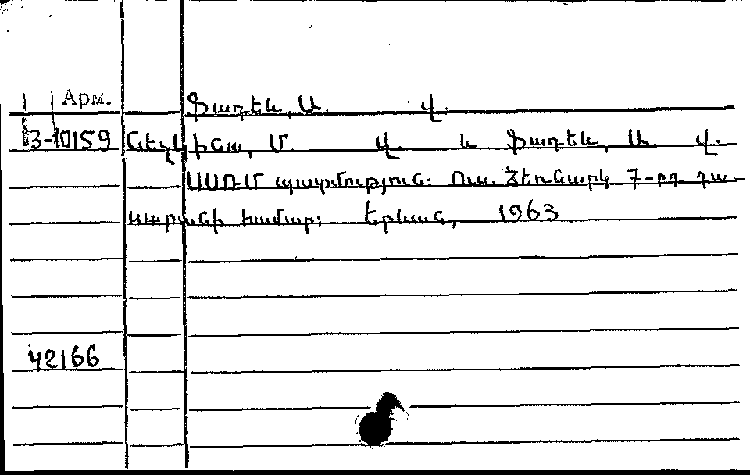 Арм. Ֆադեև, Ա. Վ.
3-10159 Նեչկինա, Մ. Վ. և Ֆադեև, Ա. Վ.
ՍՍՌՄ պատմություն: Ուս. ձեռնարկ 7-րդ դա-
սարանի համար: Երևան, 1963
42166